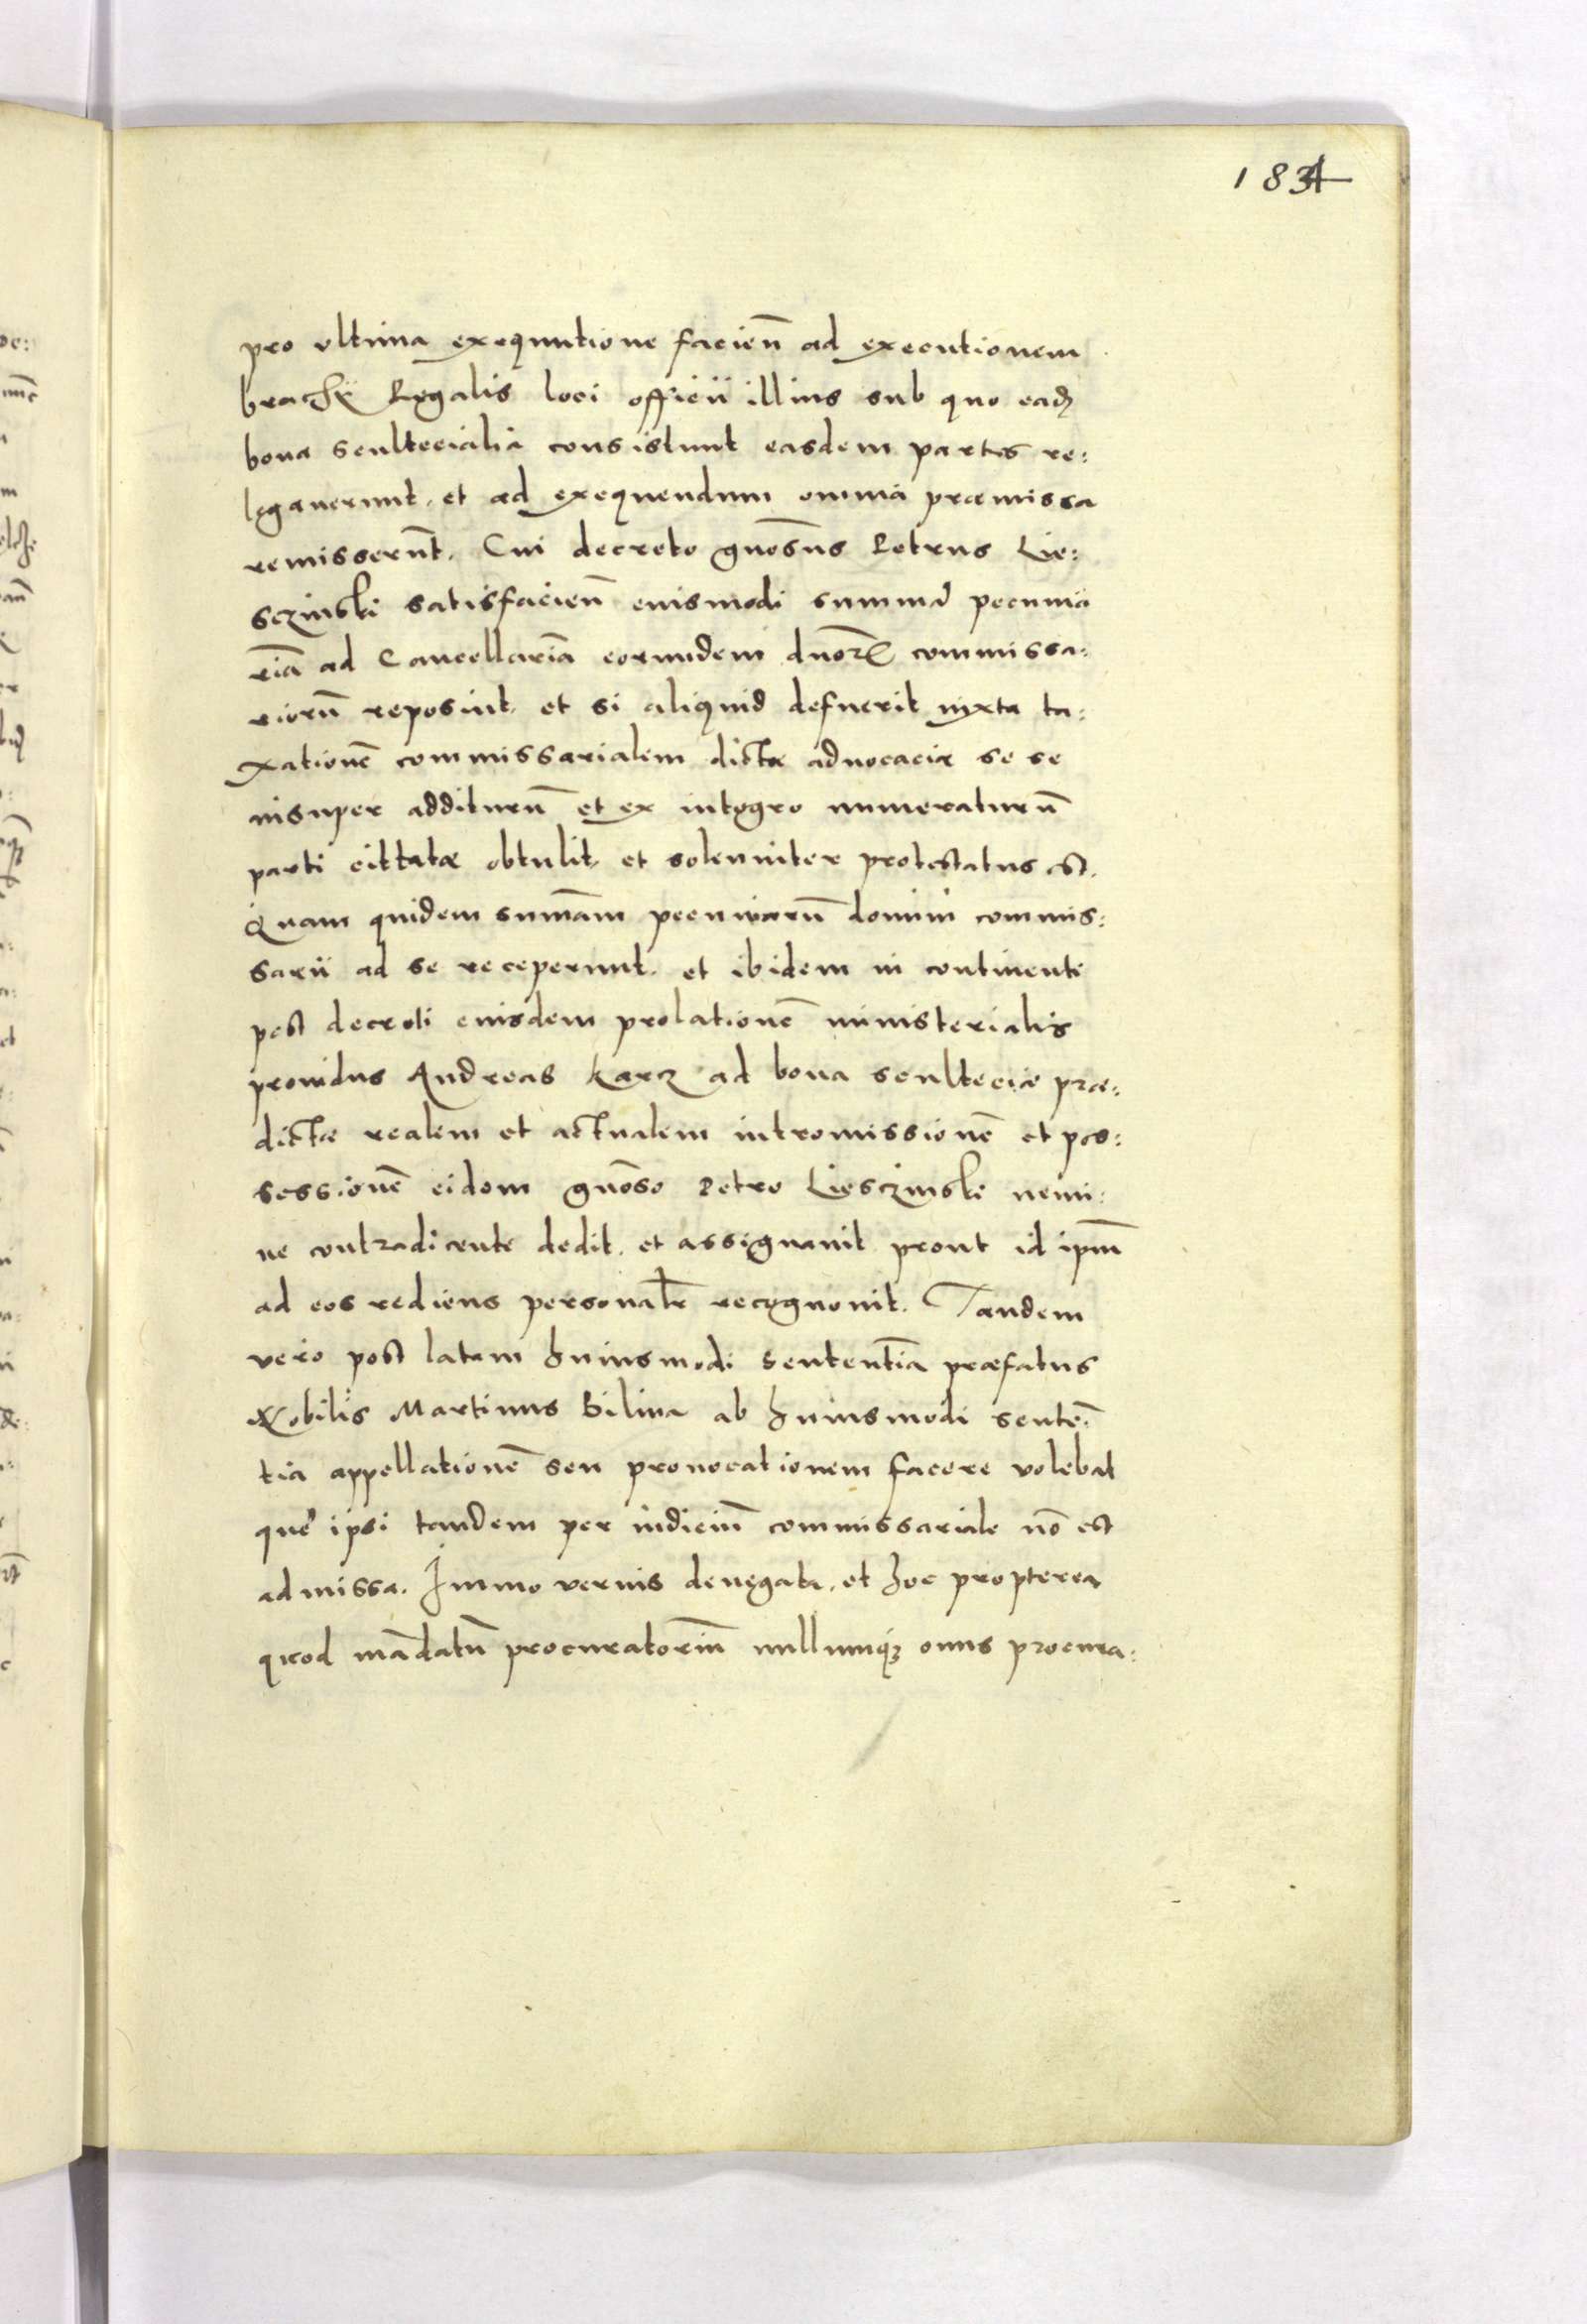 1834
pro vltima exequutione facien̄ ad executionem
brachii Regalis loci officii illius sub quo eadȝ
bona scultecialia consistunt easdem partes re:
legauerunt, et ad exequendum omnia præmissa
remisserūt. Cui decreto gn̄osus Petrus Lie:
sczinski satisfacien̄ euismodi summā pecunia
riā ad Cancellariā eorundem dn̄orꝝ commissa:
riorū reposuit, et si aliquid defuerit iuxta ta:
xationē commissarialem dictæ aduocaciæ se se
insuper additurū et ex integro numeraturū
parti cittatæ obtulit, et solenniter protestatus est.
Quam quidem sum̄am pecuniarū domini commis:
sarii ad se receperunt, et ibidem in continenti
post decreti eiusdem prolationē ministerialis
prouidus Andreas karcz ad bona sculteciæ præ:
dictæ realem et actualem intromissionē et pos:
sessionē eidem gn̄oso Petro Liesczinski nemi:
ne contradicente dedit, et assignauit prout id ipm̄
ad eos rediens personalr̄ recognouit. Tandem
vero post latam huiusmodi sententiā præfatus
Nobilis Martinus Bilina ab huiusmodi sentē:
tia appellationē seu prouocationem facere volebat
quę ipsi tandem per iudiciū commissariale nō est
admissa. Immo verius denegata, et hoc propterea
quod mādatū procuratoriū nullumqȝ onus procura: